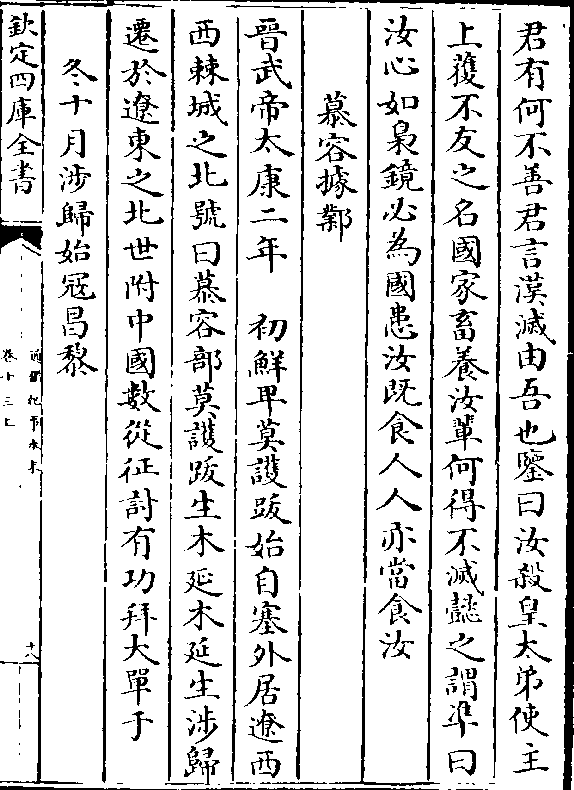 君有何不善君言漢滅由吾也鑒曰汝殺皇太弟使主
上獲不友之名國家畜養汝輩何得不滅懿之謂準曰
汝心如梟鏡必為國患汝既食人人亦當食汝
慕容據鄴
晉武帝太康二年　初鮮卑莫護跋始自塞外居遼西
西棘城之北號曰慕容部莫護跋生木延木延生涉歸
遷於遼東之北世附中國數從征討有功拜大單于
冬十月涉歸始冦昌黎
欽定四庫全書
通鑑紀事本末
卷十三上
十八